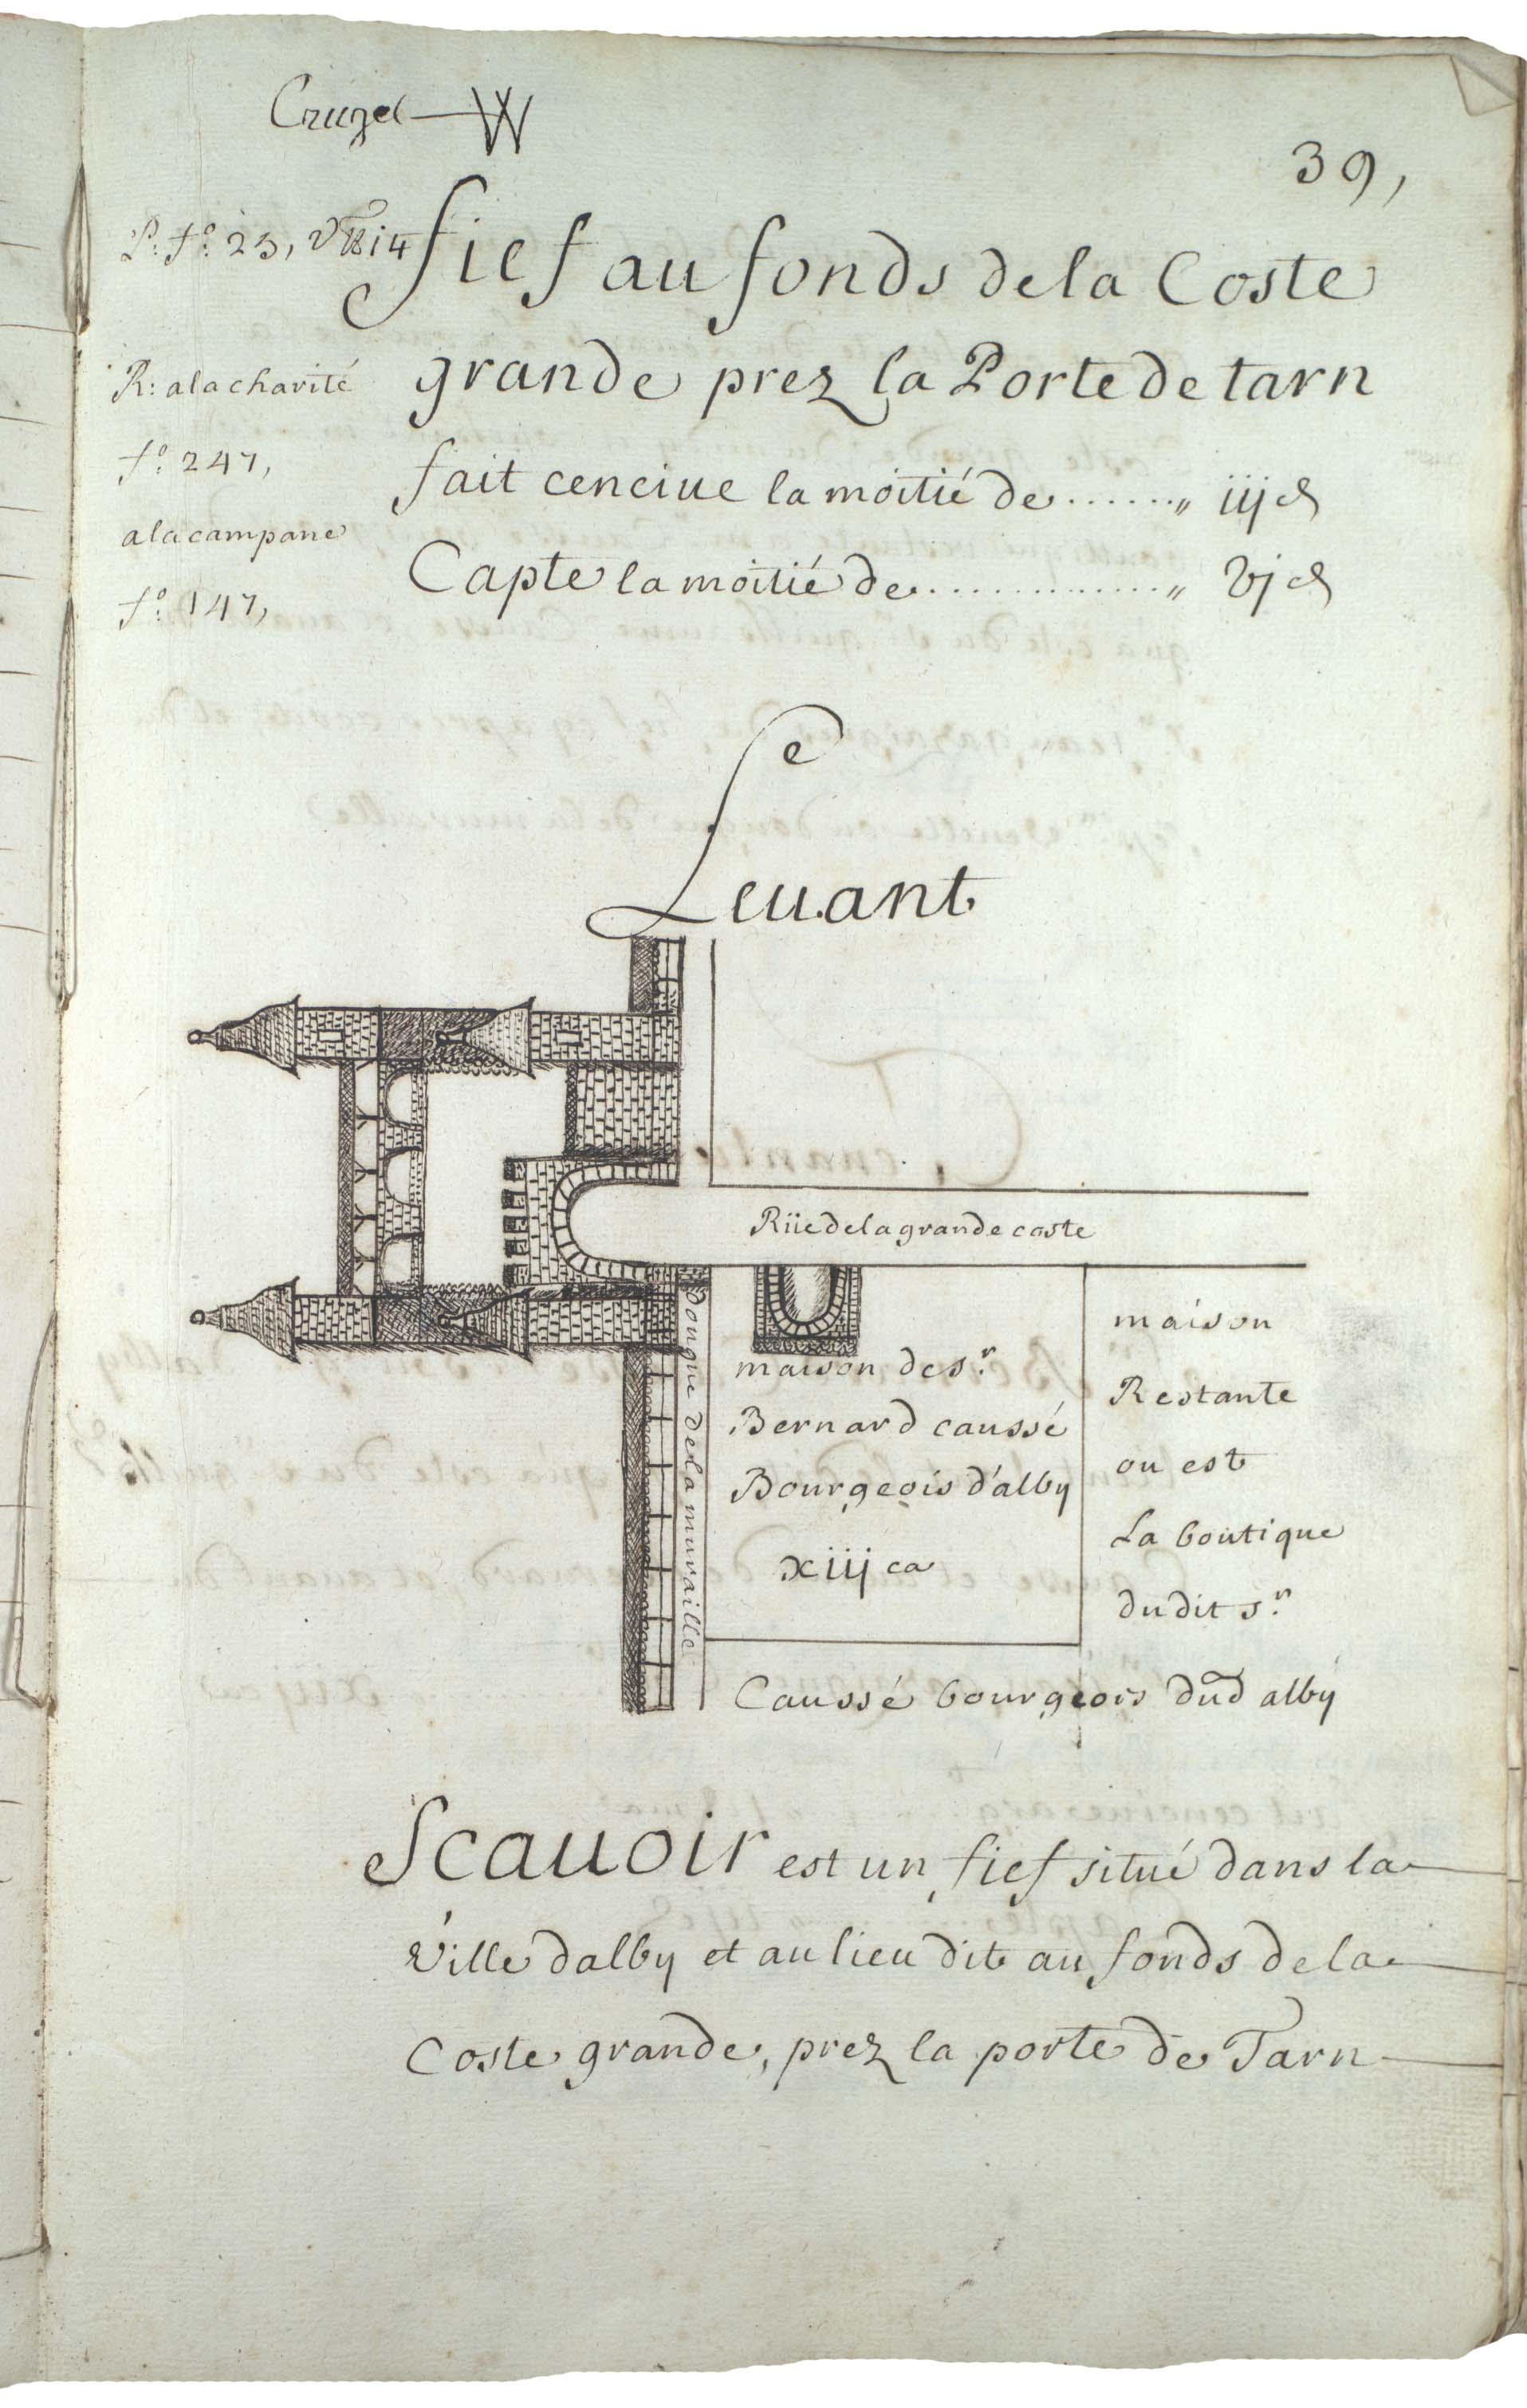 Cruzel
39,
P: fo: 23, vo 14
fief au fonds de la Coste
grande prez la Porte de tarn
R: a la charité
fo: 247,
a la campane
fo: 147,
fait cenciue la moitié de ....... „ iij d
Capte la moitié de .............. „ vj d
Le
Leuant
Rüe de la grande coste
Dougue de la muraille
maison de sr.
Bernard caussé
Bourgeois d'alby
xiij ca
maison
Restante
ou est
La boutique
du dit sr.
Caussé bourgeois dud alby
Scauoir est un fief situé dans la
Ville dalby et au lieu dit au fonds de la
Coste grande, prez la porte de Tarn